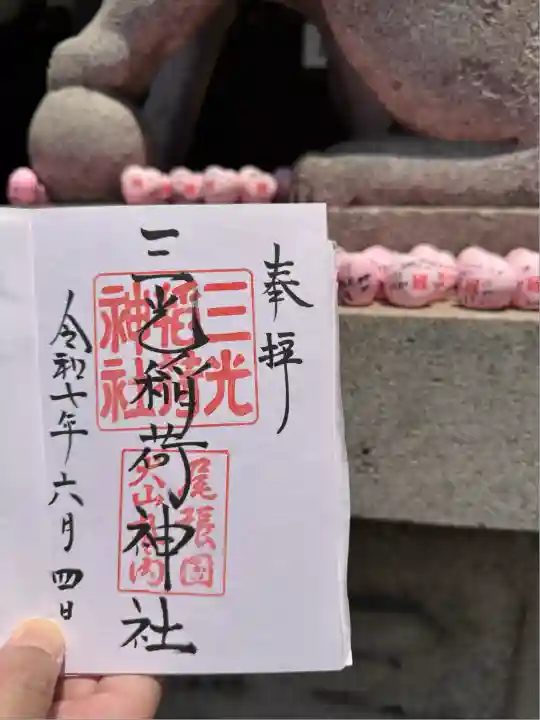 奉拝
三光稲荷神社
令和七年六月四日
三光
稲荷
神社
尾張国
犬山